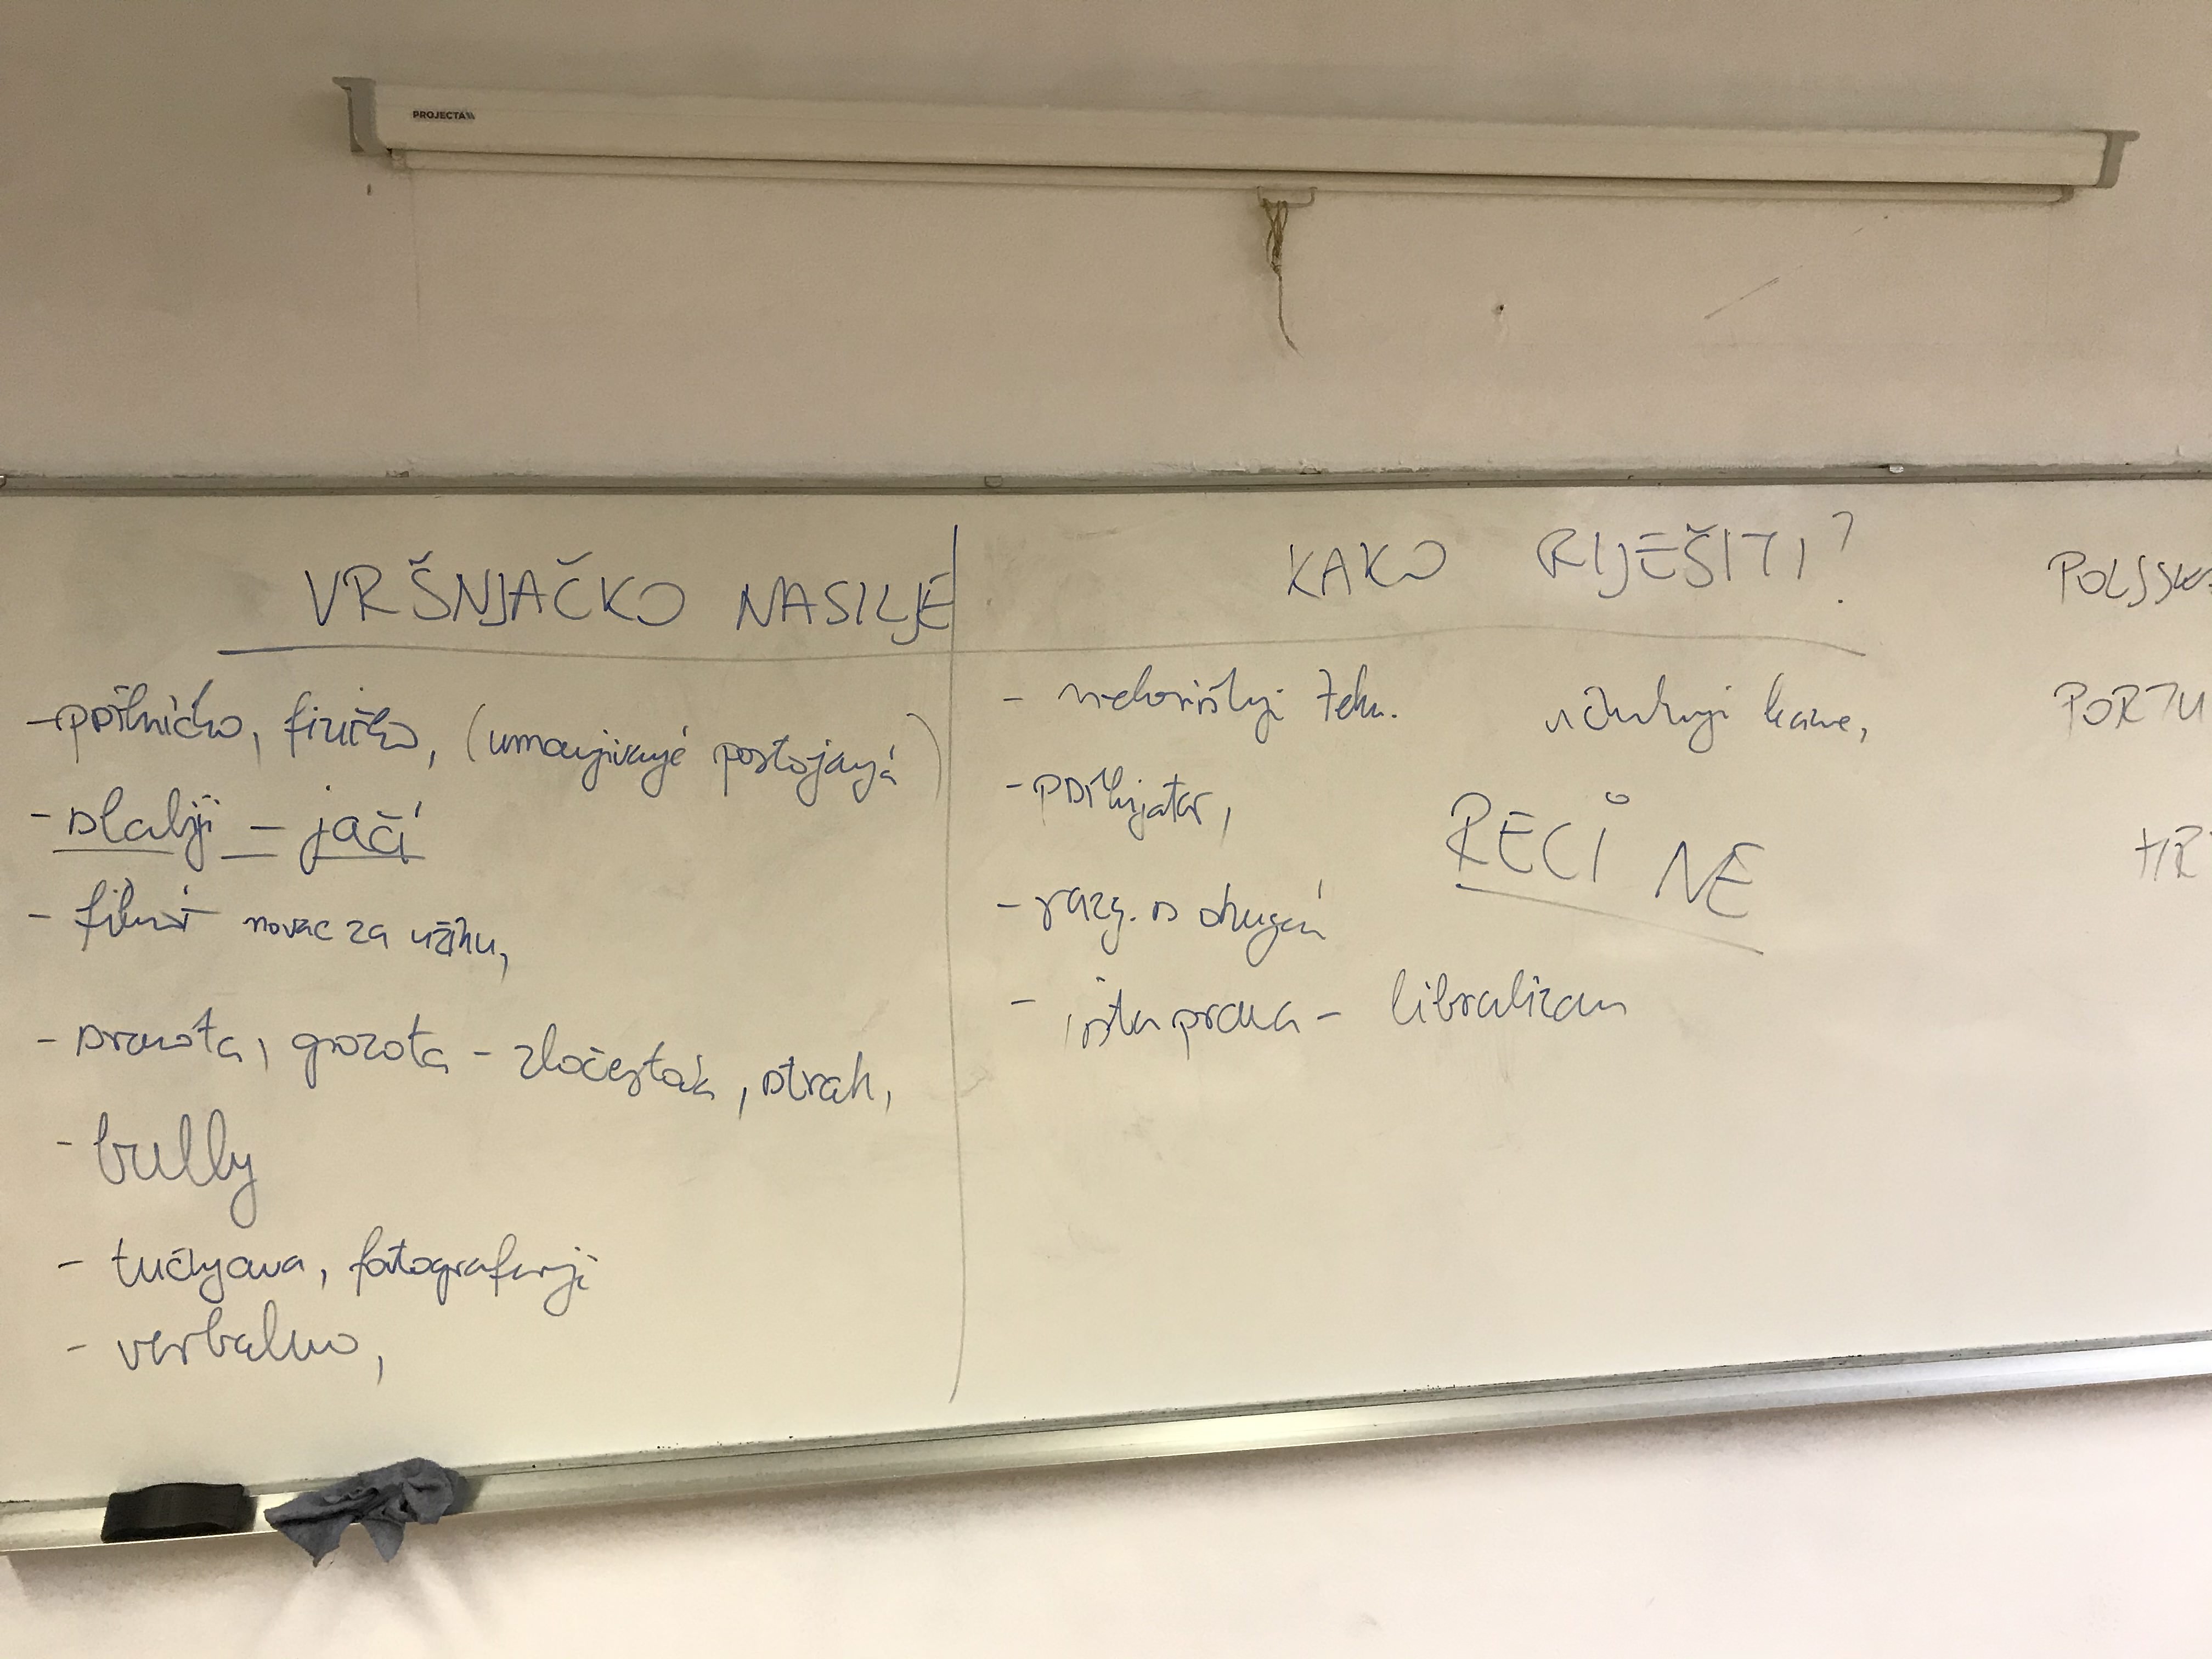 PROJECTA
VRŠNJAČKO NASILJE
- psihičko, fizičko, (umanjivanje postojanja)
- slabiji - jači
- filmovi novac za užinu,
- sramota, grozota - zločestoća, strah,
- bully
- tučnjava, fotografiraji
- verbalno,
KAKO RIJEŠITI?
- nekorištenje tehn. kazne,
- psihijatar,
RECI NE
- razg. s drugim
- ista prava - libralizam
POLJSKA
PORTU
HR